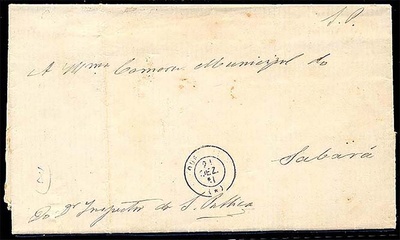 S. P.
A Illma Camara Municipal de
Sabará
21
DEZ
Do Dr Inspector da S. Publica